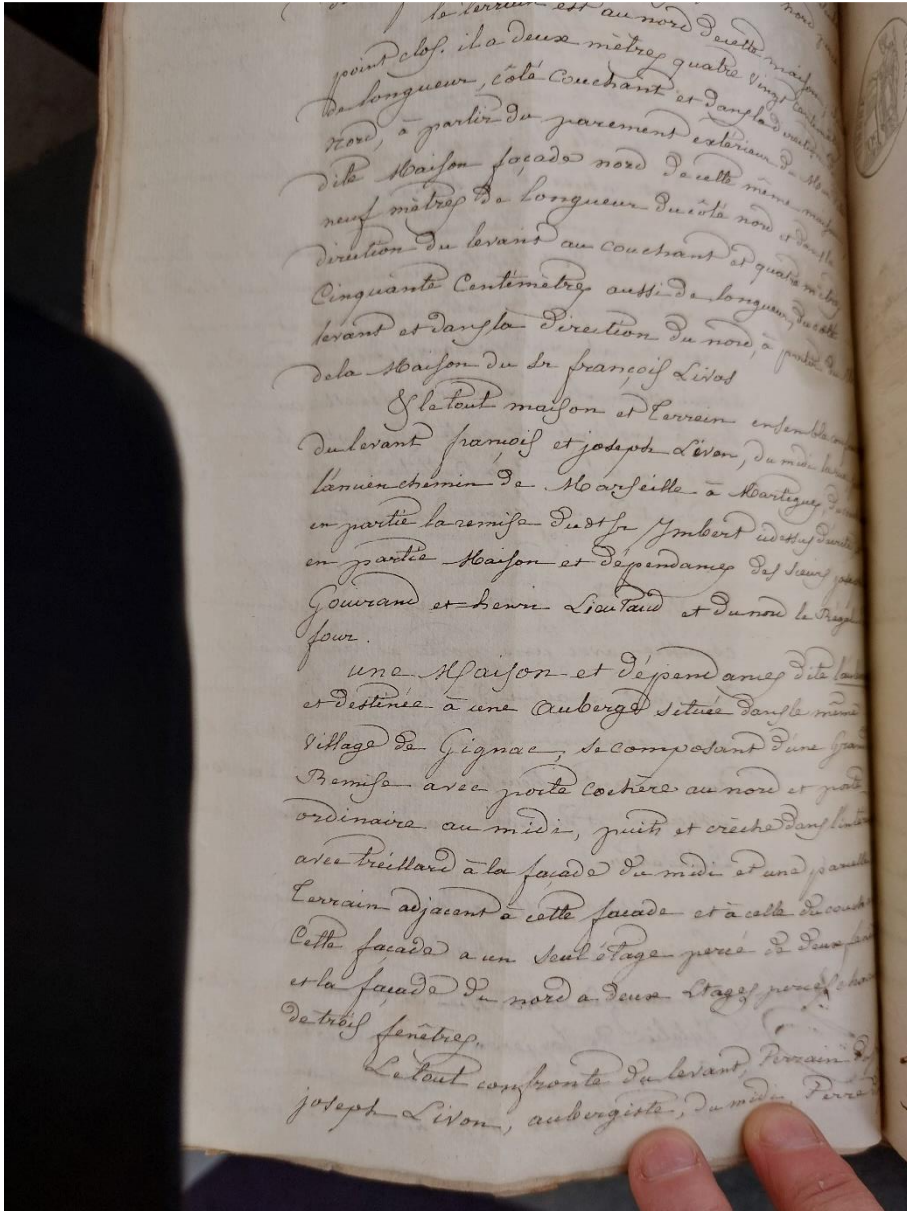 le terrein est au nord de cette maison
point clos. il a deux mètres quatre vingt
de longueur, côté couchant et dans la direction
nord, à partir du parement extérieur de
dite Maison façade nord de cette même maison
neuf mètres de longueur du côté nord et dans la
direction du levant au couchant et quatre mètres
Cinquante Centimètres aussi de longueur, du côté
levant et dans la direction du nord, à partir
de la Maison du Sr françois Livon
& le tout maison et Terrein ensemble
du levant françois et joseph Livon, du midi
l'ancien chemin de Marseille à Martigues,
en partie la remise dudt Sr Ymbert
en partie Maison et dépendances des sieurs
Gouirand et henri Lieutaud et du nord le
four.
une Maison et dépendances dite
et destinée à une Auberge située dans le même
Village de Gignac, se composant d'une
Remise avec porte cochère au nord et porte
ordinaire au midi, puits et crèche dans
avec treillard à la façade du midi et une parcelle
Terrain adjacent à cette façade et à celle du
Cette façade a un seul étage percé de deux
et la façade du nord a deux Etages percés
de trois fenêtres.
Le tout confronte du levant, Terrain
joseph Livon, aubergiste, du midi,